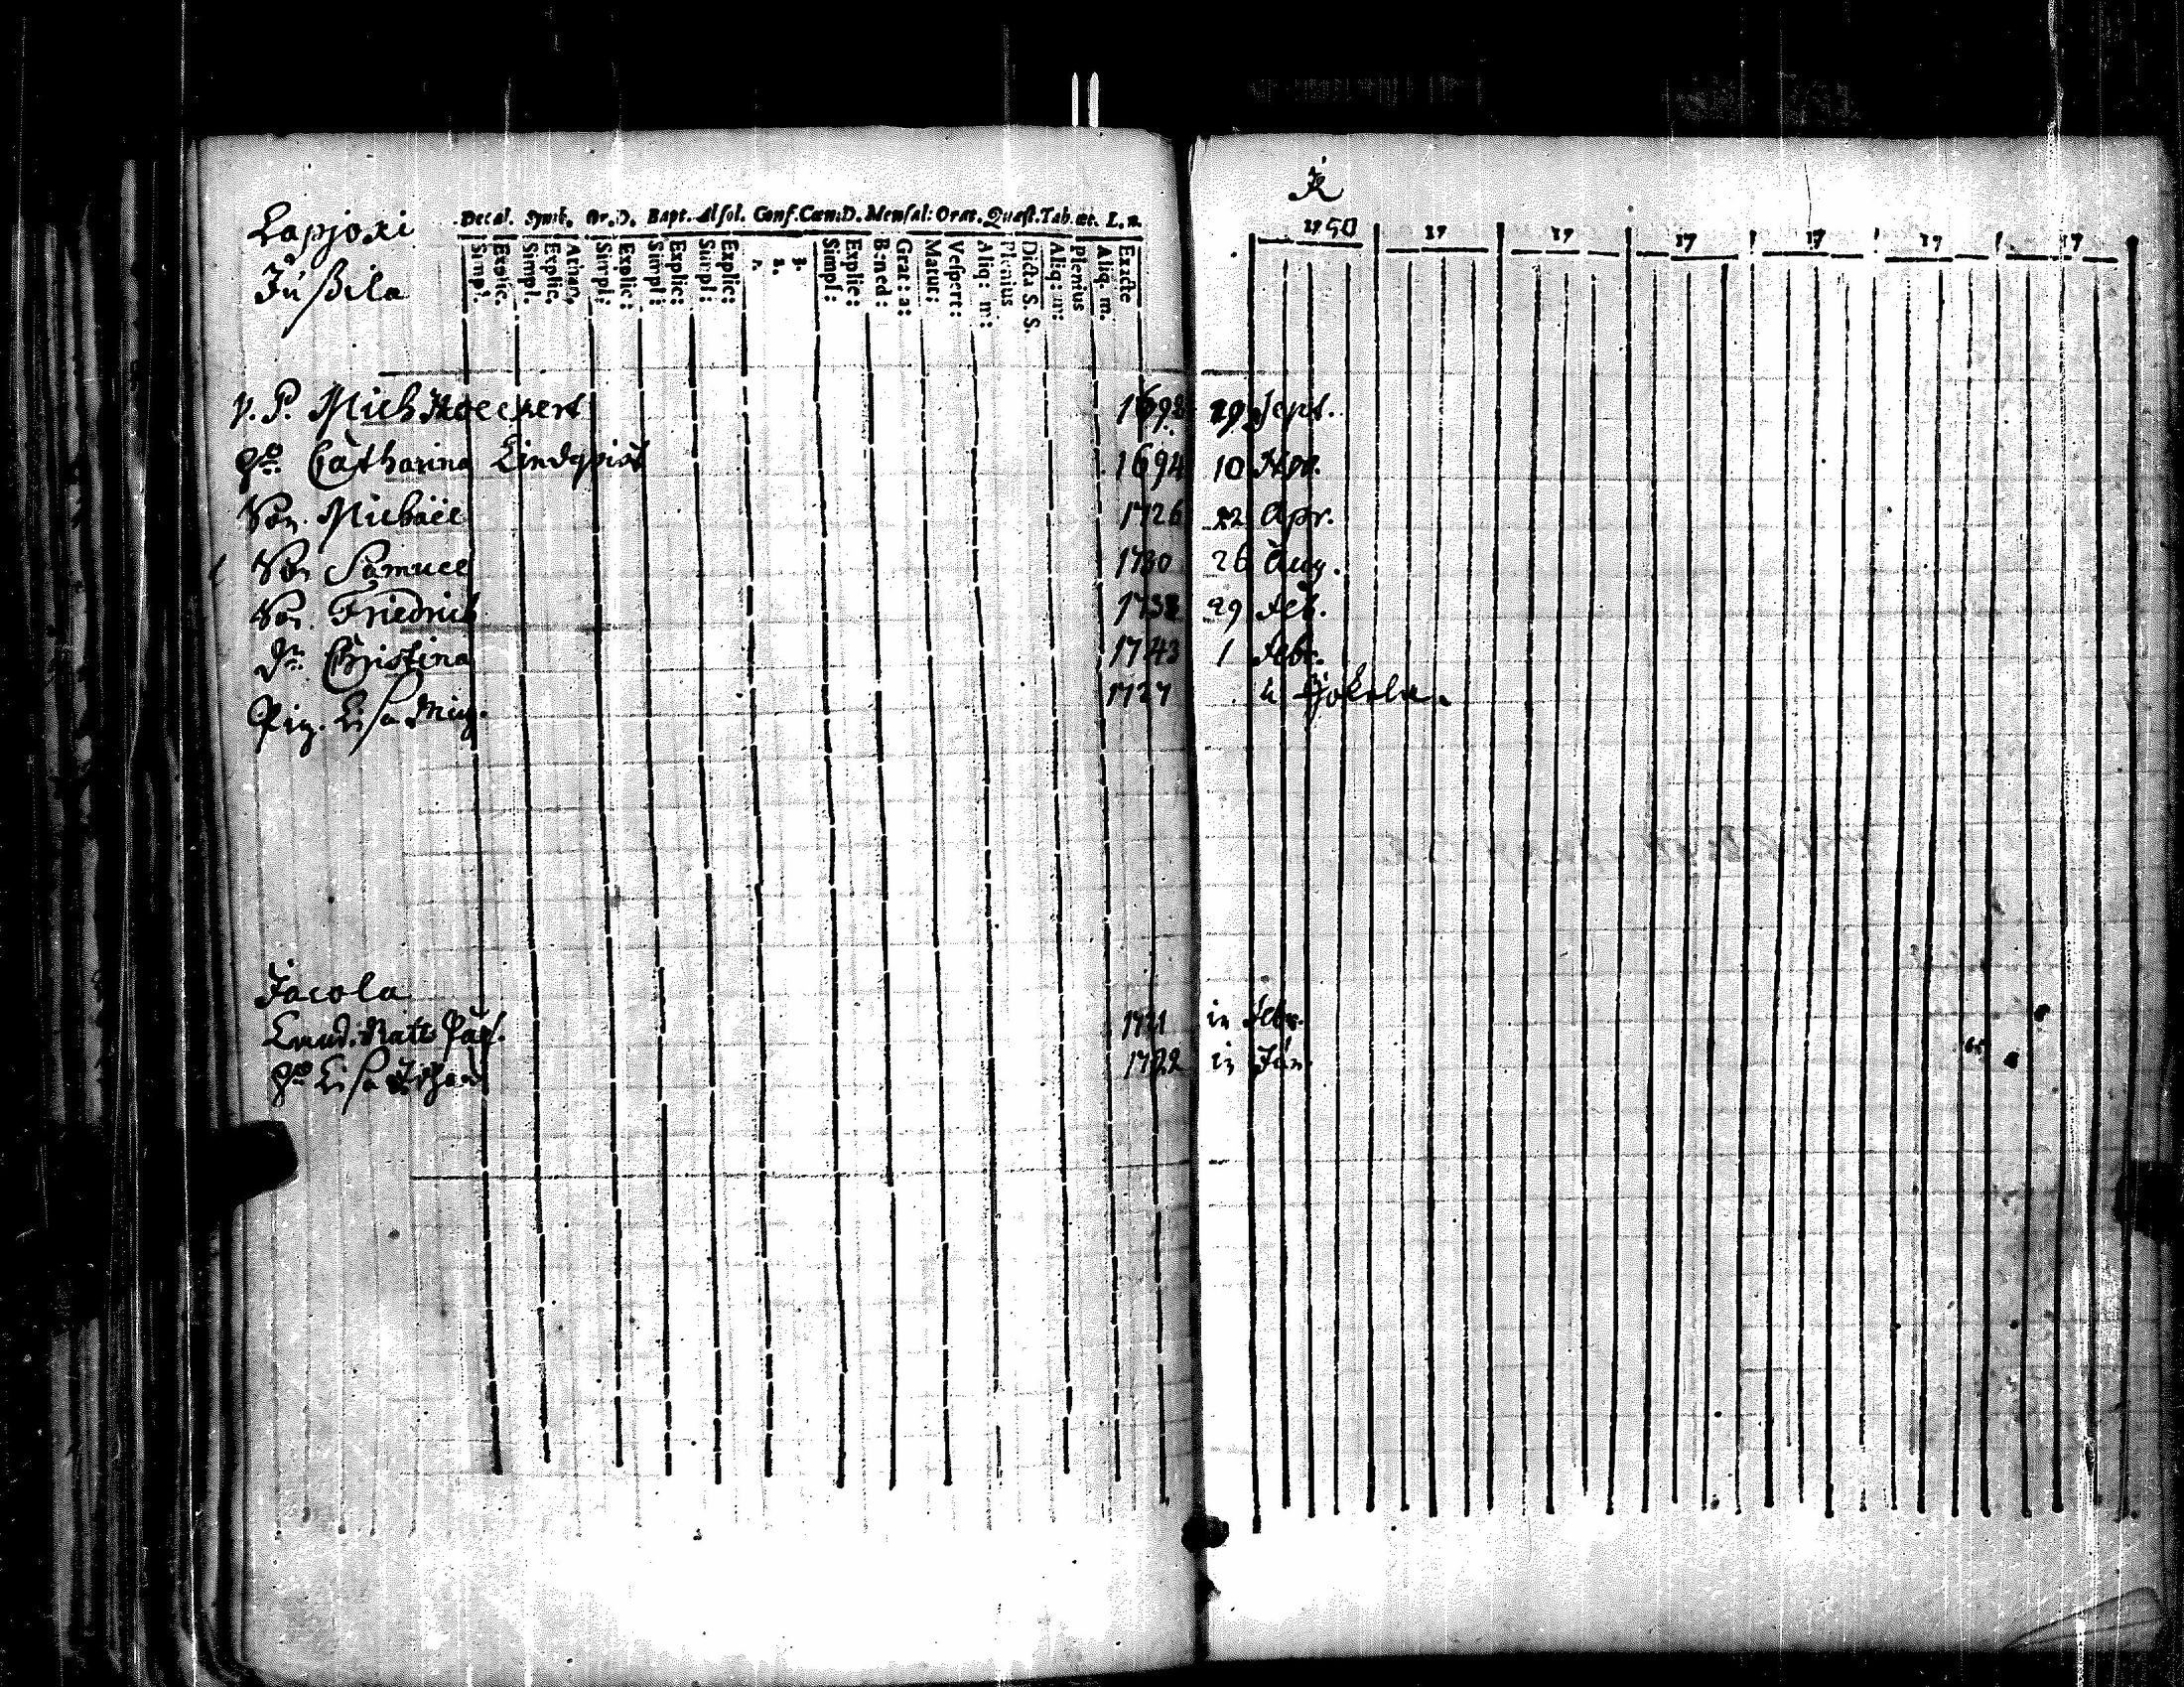 Lapjoki
Jußila
Decal. Symb. Or. D. Bapt. Absol. Conf. Cœn:D. Mensal: Orat. Quæst. Tab. œc. L. n.
Simpl. Explic. Simpl. Explic. Athan. Simpl: Explic: Simpl: Explic: Simpl: Explic: 1. 2. 3. Simpl: Explic: Bened: Grat: a: Matut: Vespert: Aliq: m: Plenius Dicta S. S. Aliq: m: Plenius Aliq. m. Exacte
1750 17 17 17 17 17 17
p. P. Mich 1692 29 Sept.
Catharina Lindqvist 1694 10 Nov.
Son. Michael 1726 22 Apr.
Son Samuel 1730 26 Aug.
Son. Friedrich 1732 29 Feb.
Dr. Christina 1743 1 Febr.
Pig. Lisa 1727
Jacola
Matts 1721 in Febr.
Lisa Johan 1722 in Jun.